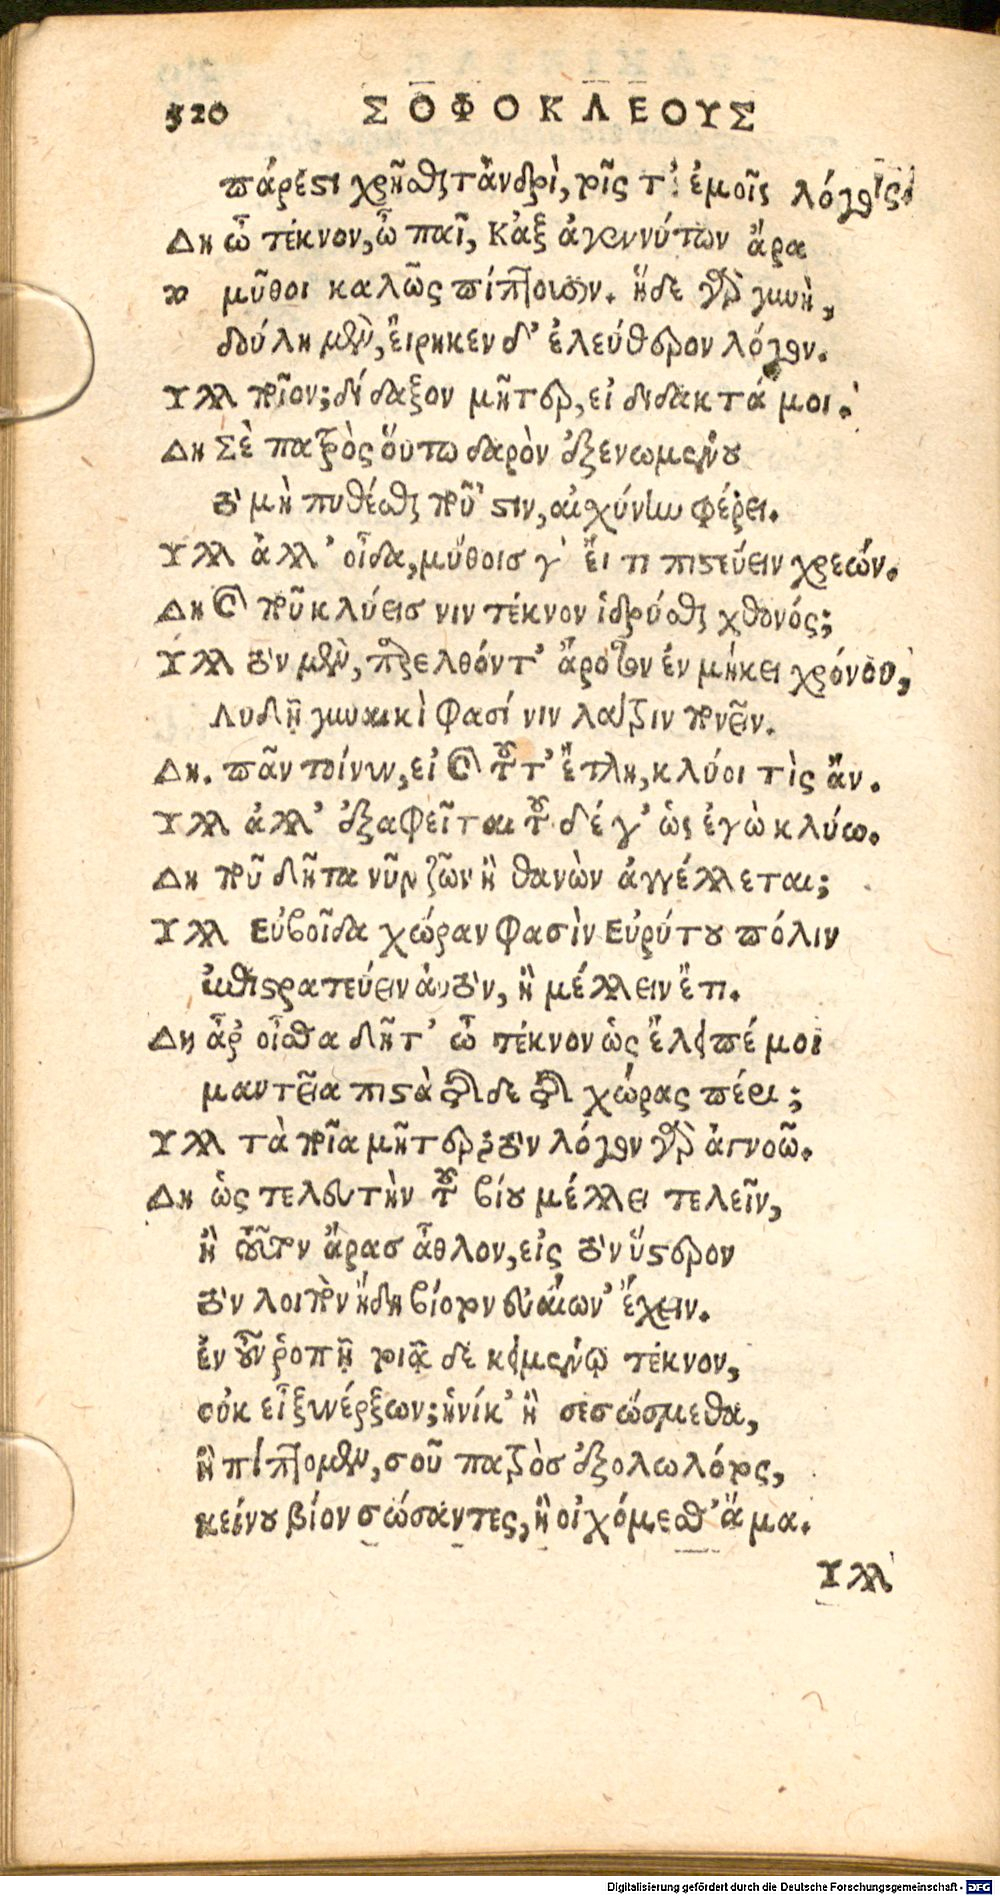 320 ΣΟΦΟΚΛΕΟΥΣ
πάρεστι χρῆσθαι τἀνδρὶ, τοῖς τ' ἐμοῖς λόγοις.
Δη ὦ τέκνον, ὦ παῖ, κἀξ ἀγεννήτων ἄρα
μῦθοι καλῶς πίπτουσιν. ἥδε γὰρ γυνὴ,
δούλη μὲν, εἴρηκεν δ' ἐλεύθερον λόγον.
Υλλ ποῖον; δίδαξον μῆτερ, εἰ διδακτά μοι.
Δη Σὲ πατρὸς οὕτω δαρὸν ἐξενωμένου
τὸ μὴ πυθέσθαι ποῦ 'στιν, αἰσχύνην φέρει.
Υλλ ἀλλ' οἶδα, μύθοισ γ' εἴ τι πιστεύειν χρεών.
Δη καὶ ποῦ κλύεισ νιν τέκνον ἱδρύσθαι χθονός;
Υλλ τὸν μὲν παρελθόντ' ἄροτον ἐν μήκει χρόνου,
Λυδῇ γυναικὶ φασί νιν λάτριν πονεῖν.
Δη. πᾶν τοίνυν, εἰ καὶ τοῦτ' ἔτλη, κλύοι τὶς ἄν.
Υλλ ἀλλ' ἐξαφεῖται τοῦδέ γ' ὡς ἐγὼ κλύω.
Δη ποῦ δῆτα νῦν ζῶν ἢ θανὼν ἀγγέλλεται;
Υλλ Εὐβοῖδα χώραν φασὶν Εὐρύτου πόλιν
ἐπιστρατεύειν αὐτὸν, ἢ μέλλειν ἔτι.
Δη ἆρ' οἶσθα δῆτ' ὦ τέκνον ὡς ἔλειπέ μοι
μαντεῖα πιστὰ τῆσδε τῆς χώρας πέρι;
Υλλ τὰ ποῖα μῆτερ; τὸν λόγον γὰρ ἀγνοῶ.
Δη ὡς τελευτὴν τοῦ βίου μέλλει τελεῖν,
ἢ τοῦτον ἄρασ ἆθλον, εἰς τὸν ὕστερον
τὸν λοιπὸν ἤδη βίοτον εὐαίων' ἔχειν.
ἐν οὖν ῥοπῇ τοιᾷδε κειμένῳ τέκνον,
οὐκ εἶ ξυνέρξων; ἡνίκ' ἢ σεσώσμεθα,
ἢ πίπτομεν, σοῦ πατρὸσ ἐξολωλότος,
κείνου βίον σώσαντες, ἢ οἰχόμεσθ' ἅμα.
Υλλ
Digitalisierung gefördert durch die Deutsche Forschungsgemeinschaft - DFG